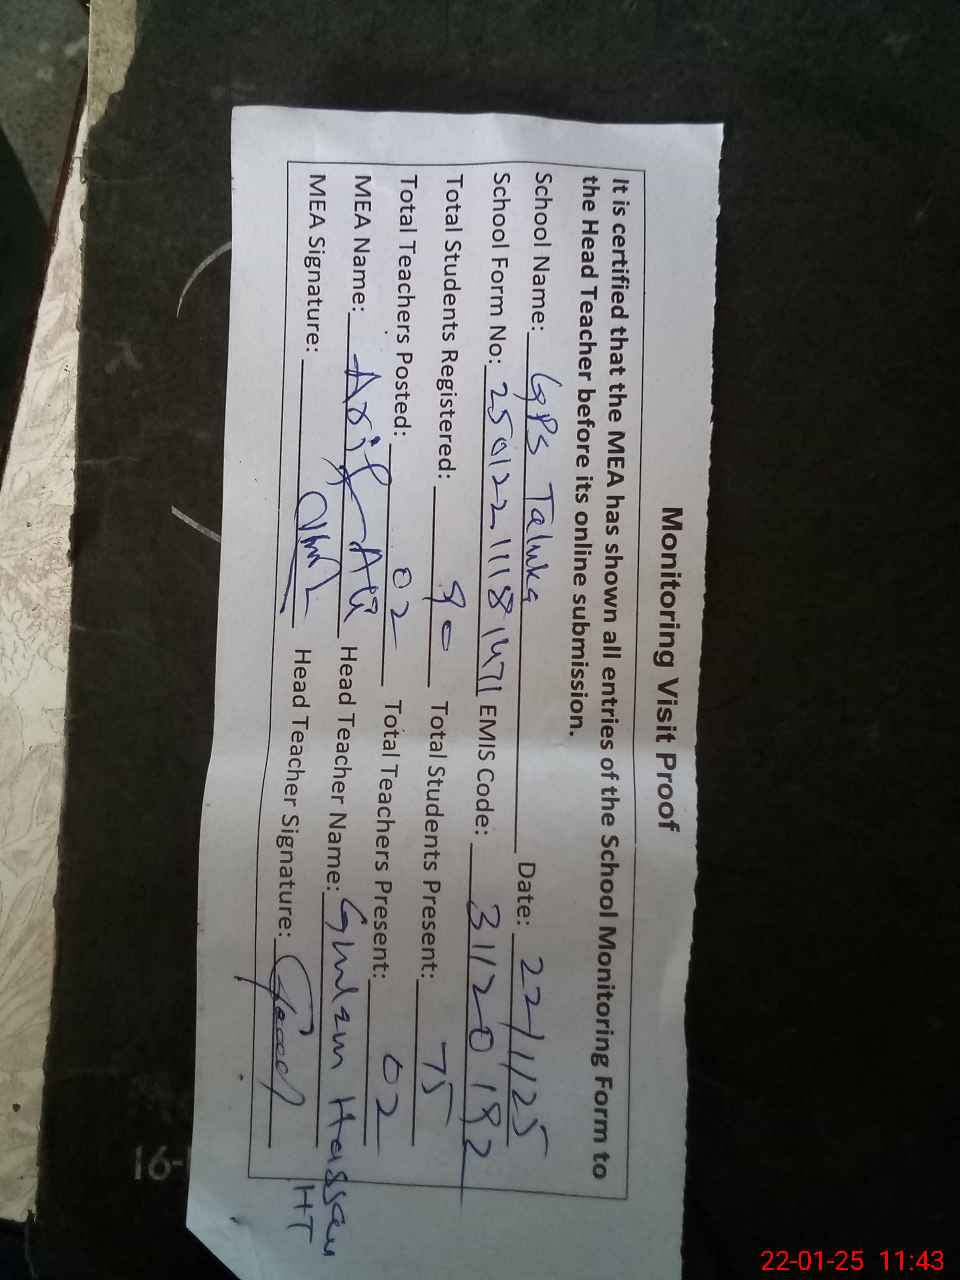 Monitoring Visit Proof
It is certified that the MEA has shown all entries of the School Monitoring Form to
the Head Teacher before its online submission.
School Name: GPS Taluka Date: 22/1/25
School Form No: 25012211181471 EMIS Code: 31120192
Total Students Registered: 90 Total Students Present: 75
Total Teachers Posted: 02 Total Teachers Present: 02
MEA Name: Asif Ali Head Teacher Name: Ghulam Hassan
MEA Signature: Head Teacher Signature: HT
16-
22-01-25 11:43